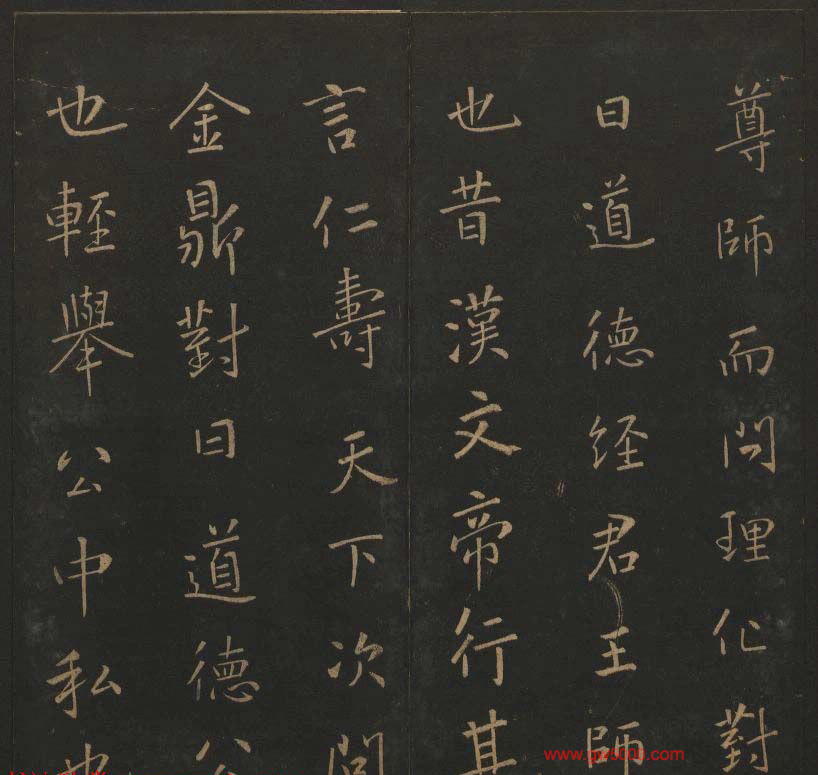 尊師而問理化對
曰道德經君王師
也昔漢文帝行其
言仁壽天下次問
金鼎對曰道德公
也輕舉公中私也
www.gw5000.com